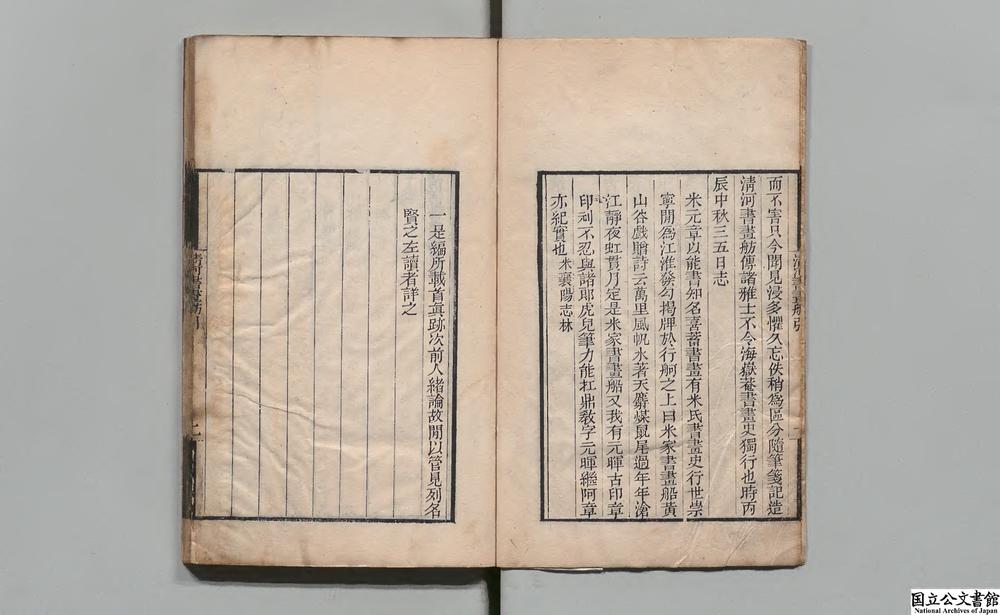 而不害只今聞見浸多懼久忘佚稍為區分隨筆箋記造
清河書畫舫傳諸雅士不令海嶽菴書畫史獨行也時丙
辰中秋三五日志
米元章以能書知名喜蓄書畫有米氏書畫史行世崇
寧間為江淮發勾揭牌於行舸之上曰米家書畫船黃
山谷戲贈詩云萬里風帆水著天麝煤鼠尾過年年滄
江靜夜虹貫月定是米家書畫船又我有元暉古印章
印刓不忍與諸郎虎兒筆力能杠鼎敎字元暉繼阿章
亦紀實也 米襄陽志林
清河書畫舫引
一是編所載首眞跡次前人緒論故間以管見列名
賢之左讀者詳之
清河書畫舫引
二
国立公文書館
National Archives of Japan